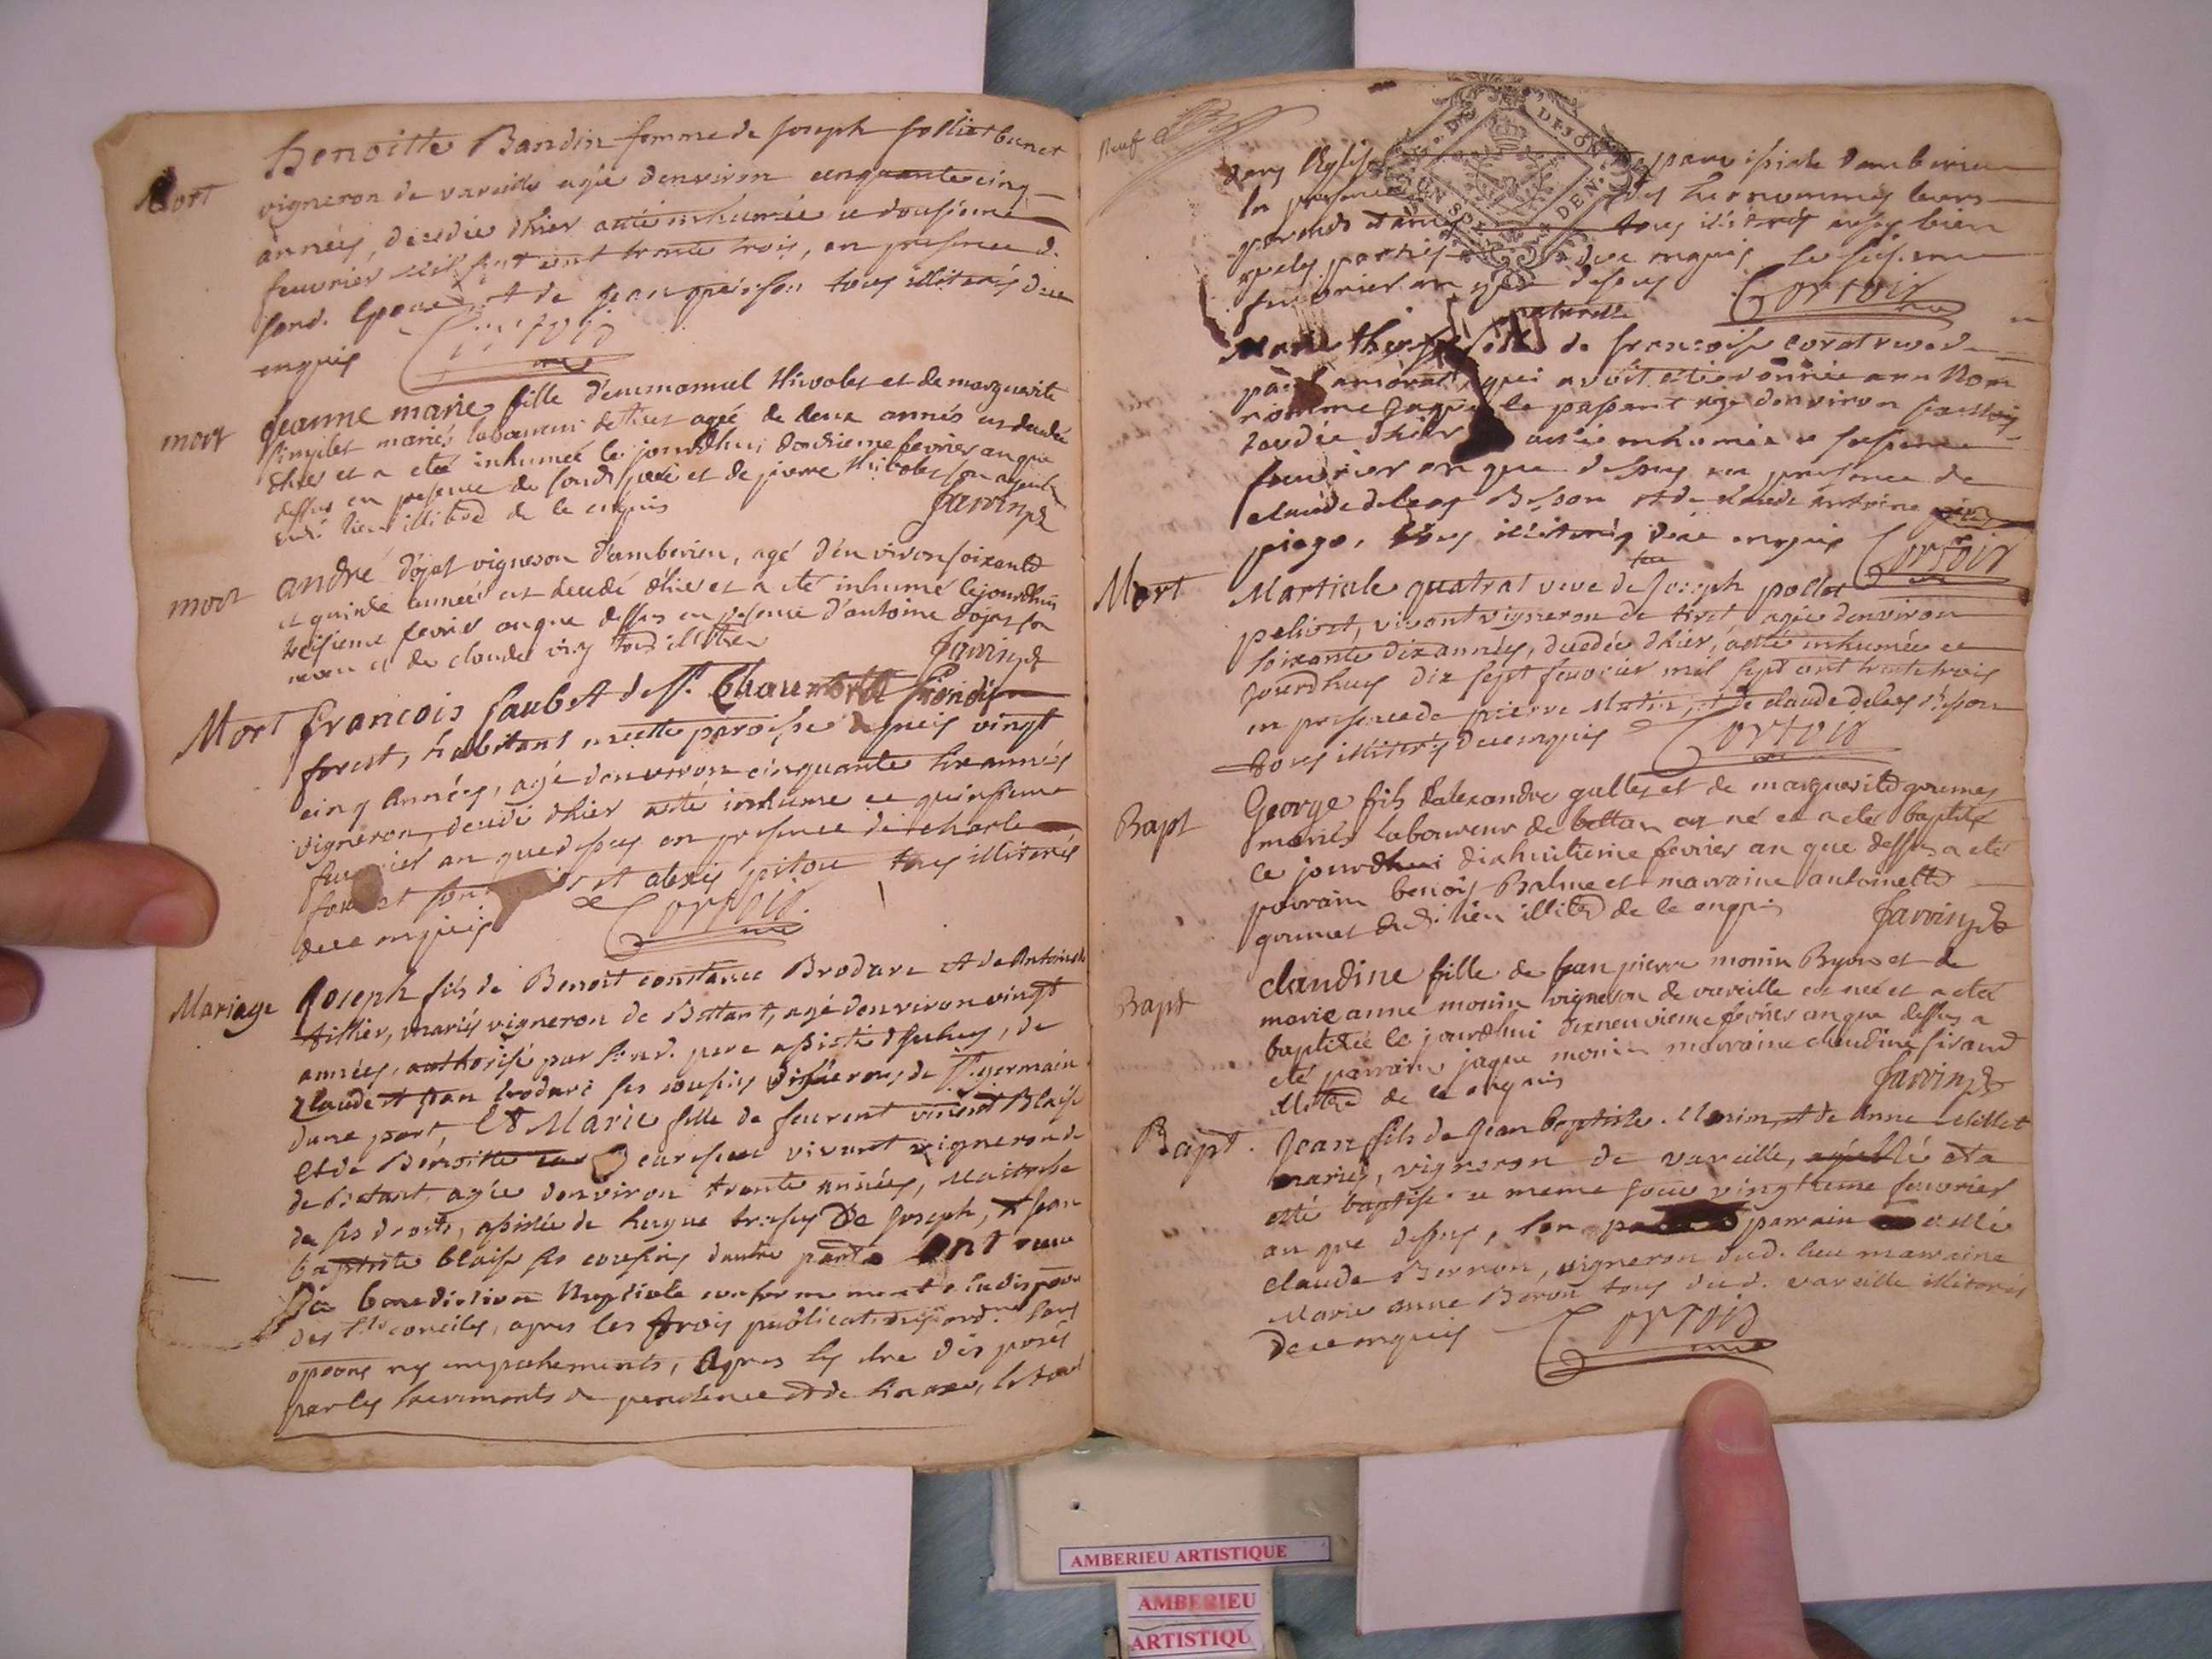 Mort
Benoitte Bandin femme de Joseph folliet bunet
vigneron de vareille agée denviron cinquante cinq
années, decedée dhier a été inhumée ce dousieme
feuvrier mil sept cent trente trois, en presence d.
sond. Epoux et de Jean tous illiterés de ce
enquis Cortois
mort
Jeanne marie fille d'emmanuel Hivolet et de marguerite
mariés laboureur de tiret agée de deux annés est decedée
dhier et a eté inhumée le jourdhui douzieme fevrier an que
dessus en presence de sondit pere et de pierre Hivolet son
dud. lieu illitrés de ce enquis Jarvin
mort
andré dojat vigneron d'amberieu, agé d'environ soixante
et quinze années est decedé dhier et a eté inhumé le jourdhui
treisieme fevrier an que dessus en presence d'antoine dojat son
neveu et de claude tous illitrés Jarvin
Mort
francois faubet de St. Chaumont
forest, habitant en cette paroisse depuis vingt
cinq années, agé denviron cinquante six années
vigneron, decedé dhier a été inhumé ce quinsieme
feuvrier an que desus en presence de charle
et alexis pitou tous illiterés
de ce enquis Cortois
Mariage
Joseph fils de Benoit constance Brodare et de Antoinette
tillier, mariés vigneron de Bettant, agé denviron vingt
années, authorisé par sond. pere assisté de de
Claude et Jean brodare ses cousins vignerons de St. germain
dune part, Et Marie fille de feu vincent Blaise
et de Benoitte vivant vigneron de
de Betant, agée denviron trente années, Maitresse
de ses droits, assistée de hugue de Joseph, et Jean
baptiste blaise ses cousins dautre part ont recu
La benediction Nuptiale conformement a la
des Sts. conciles, apres les trois publications ord. sans
opposns ny empechements, apres s'y etre disposés
par les sacrements de penitence et de le tout
Neuf
dans l'Eglise paroissiale damberieu
la presence des susnommés leurs
parents et amis tous illiterés aussy bien
que les parties de ce enquis le seisieme
feuvrier an que desus Cortois
naturelle
Marie therese fille de francoise
qui avoit été donnée a un Nom
nommé Jaque le passant agé denviron
decedée dhier a été inhumée ce seisieme
feuvrier an que desus en presence de
claude deleas Besson et de claude antoine
piego, tous illiterés de ce enquis Cortois
Mort
feu
Martiale quatrat veve de Joseph pollet
pelisset, vivant vigneron de tiret agée denviron
soixante dix années, decedée dhier, a été inhumée ce
jourdhuy dix sept feuvrier mil sept cent trente trois
en presence de pierre Matin, et de claude deleas Besson
tous illiterés de ce enquis Cortois
Bapt
George fils d'alexandre gullet et de marguerite goumet
mariés laboureur de bettan est né et a eté baptisé
ce jourdhui dixhuitieme fevrier an que dessus a eté
parrain benois Balme et marraine antoinette
goumet dud. lieu illitrés de ce enquis Jarvin
Bapt
claudine fille de jean pierre monin Byon et de
marie anne monin vigneron de vareille est née et a eté
baptisée le jourdhui dixneuvieme fevrier an que dessus a
eté parrain jaque monin marraine claudine sirand
illitrés de ce enquis Jarvin
Bapt.
Jean fils de Jean baptiste Monin, et de anne Millet
mariés, vigneron de vareille, est né et a
esté baptisé ce meme jour vingtieme feuvrier
an que desus, son parrain a esté
claude Bernon, vigneron dud. lieu marraine
Marie anne Beron tous dud. vareille illiterés
de ce enquis Cortois
AMBERIEU ARTISTIQUE
AMBERIEU
ARTISTIQU